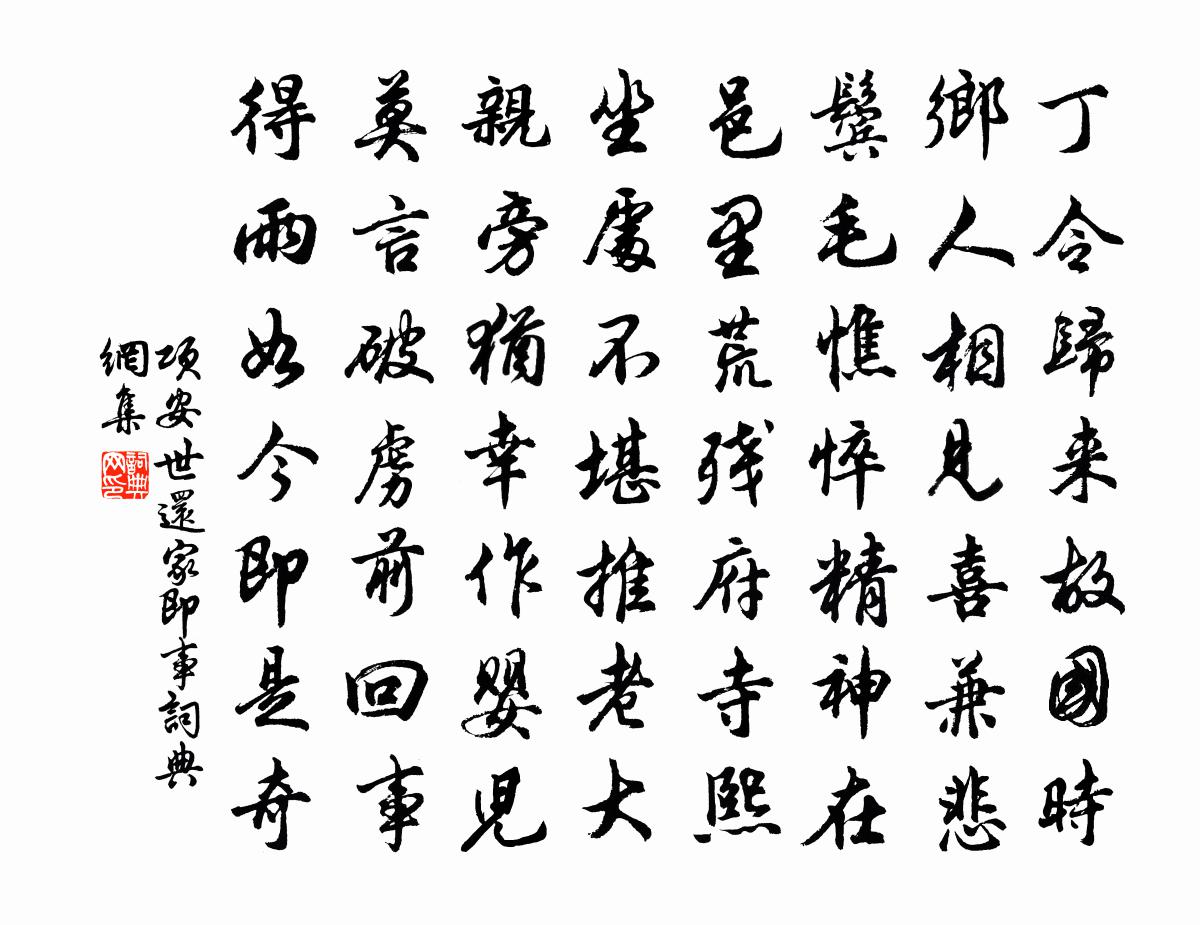 丁令歸来故國時
鄉人相見喜兼悲
鬓毛憔悴精神在
邑里荒残府寺熙
坐處不堪推老大
親旁猶幸作嬰児
莫言破虜前回事
得雨如今即是奇
項安世還家即事詞典
網集
詞典
网印